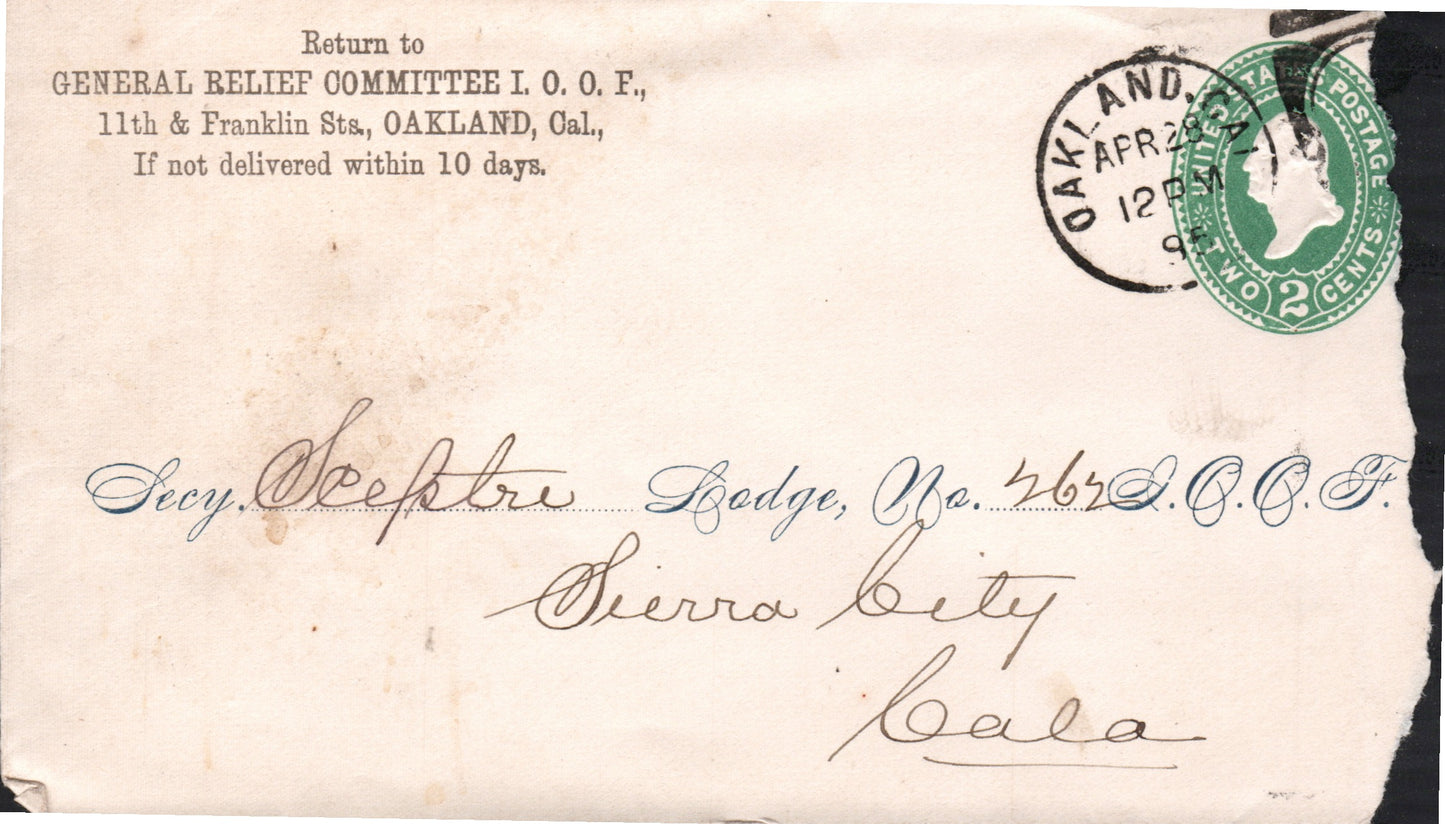 Return to
GENERAL RELIEF COMMITTEE I. O. O. F.,
11th & Franklin Sts., OAKLAND, Cal.,
If not delivered within 10 days.
OAKLAND, CAL.
APR 28
12 PM
95
UNITED STATES POSTAGE
TWO 2 CENTS
Secy. Sceptre Lodge, No. 262 I. O. O. F.
Sierra City
Cala